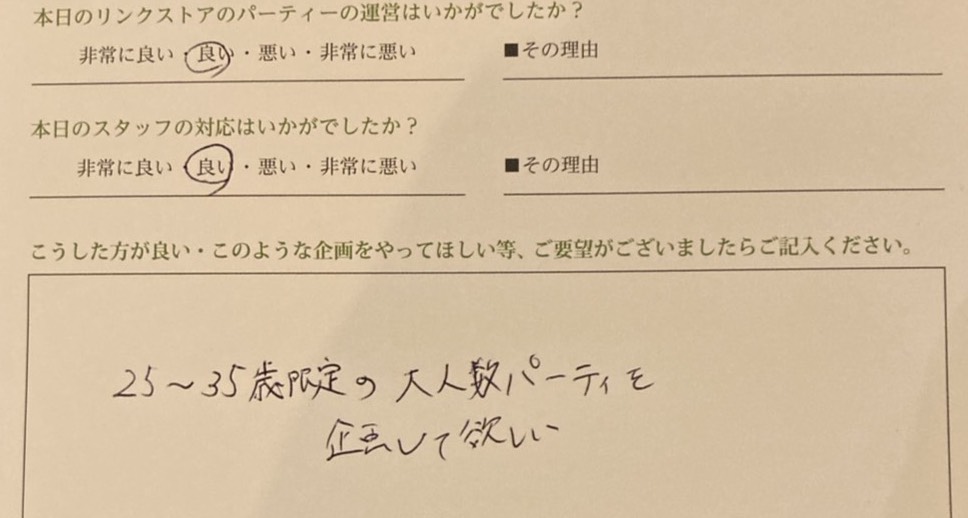 本日のリンクストアのパーティーの運営はいかがでしたか？
非常に良い・良い・悪い・非常に悪い ■その理由
本日のスタッフの対応はいかがでしたか？
非常に良い・良い・悪い・非常に悪い ■その理由
こうした方が良い・このような企画をやってほしい等、ご要望がございましたらご記入ください。
25～35歳限定の大人数パーティを
企画して欲しい